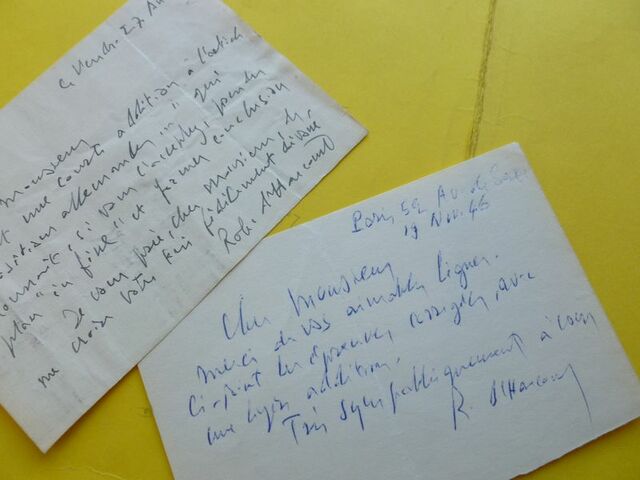 Ce Vendr. 27 Av
Monsieur
une courte addition à l'article
allemandes" qui
si vous l'acceptez, prendre
place "in fine" et former conclusion
Je vous prie, cher Monsieur, de
me croire votre bien fidèlement dévoué
Rob. d'Harcourt
Paris 52 Av. de
19 Nov. 46
Cher Monsieur
Merci de vos aimables lignes.
Ci-joint les épreuves corrigées, avec
une légère addition.
Très sympathiquement à vous
R. d'Harcourt